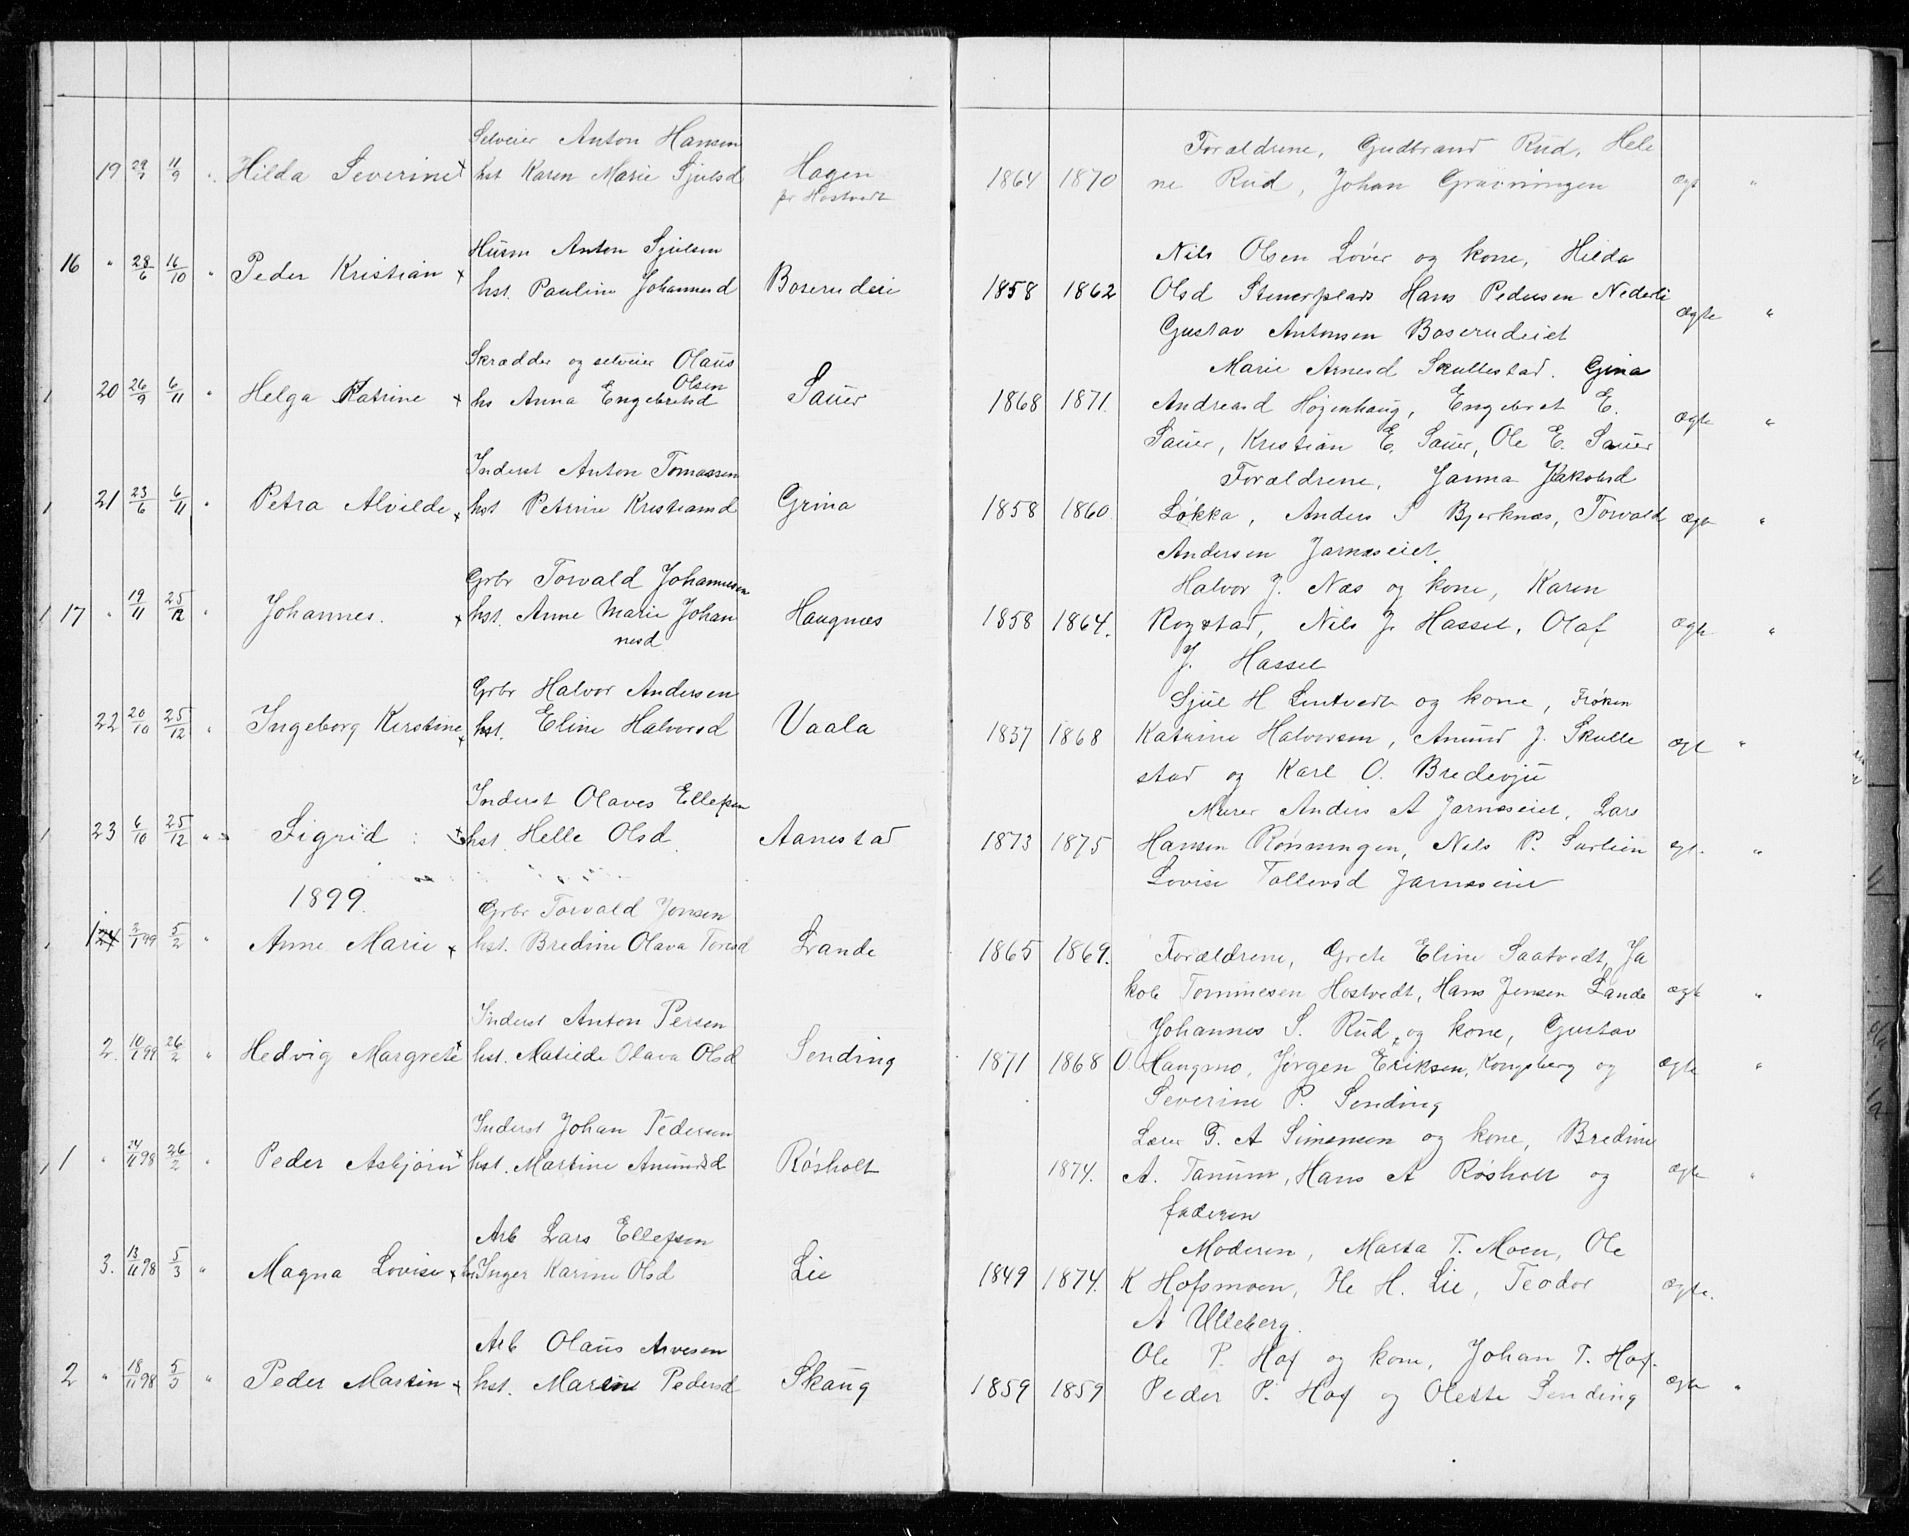 Selveier Anton Hansen
19 29/7 11/9 " Hilda Severine x hst Karen Marie Sjulsd Hagen
pr Hostvedt
Forældrene, Gudbrand Rud, Hele
1864 1870 ne Rud, Johan Grøiningen ægt "
Husm Anton Sjulsen
16 " 28/6 16/10 " Peder Kristian x hst. Pauline Johannesd Boserudeie
Nils Olsen Løver og kone, Hilda
1858 1862 Olsd Stenersplads Hans Pedersen Nederli
Gustav Antonsen Boserudeiet ægte "
Skrædder og selveier Olaus
Olsen
20 26/9 6/11 " Helga Katrine x hs Anna Engebretsd Sauer
Marie Arnesd Skullestad. Gina
1868 1871. Andreasd Høgenhaug, Engebret E. ægte "
Sauer, Kristian E. Sauer, Ole E. Sauer
Inderst Anton Tomassen
21 23/6 6/11 " Petra Alvilde x hst Petrine Kristiansd Grina
Forældrene, Janna Jakobsd
1858 1860 Løkka, Anders S Bjerknæs, Torvald ægte "
Andersen Jarnæseiet.
Grbr Torvald Johannesen
17 " 19/11 25/12 " Johannes. x hst. Anne Marie Johan Haugnæs
nesd
Halvor J. Næs og kone, Karen
1858 1864. Rogstad, Nils J. Hassel, Olaf ægte "
J. Hassel
Grbr Halvor Andersen
22 20/10 25/12 " Ingeborg Kerstine x hst. Eline Halvorsd Vaala
Sjul H Lintvedt og kone, Frøken
1837 1868 Katrine Halvorsen, Anund J. Skulle ægt "
stad og Karl O. Bredevju
Inderst Olaves Ellefsen
23 6/10 25/12 " Sigrid x hst. Helle Olsd Aanestad
Murer Anders A Jarnæseiet, Lars
1873 1875 Hansen Rønningen, Nils P. Surlien ægt. "
Lovise Tollevsd Jarnæseiet
1899.
Grbr Torvald Jonsen
1 24 2/1 99 5/2 " Anne Marie x hst. Bredine Olava Toresd Lande
1865 1869. Forældrene, Grete Eline Saatvedt, Ja
kob Tommesen Hostvedt, Hans Jensen Lande ægt "
Inderst Anton Persen
2. 10/1 99 26/2 " Hedvig Margrete x hst. Matilde Olava Olsd Sending
Johannes S. Rud og kone, Gustav
1871 1868 O. Haugmo, Jørgen Eriksen, Kongsberg og ægte "
Severine P. Sending
Inderst Johan Pedersen
1 " 24/11 98 26/2 " Peder Asbjørn x hst. Martine Anundsd Røsholt
Lærer T. A Simensen og kone, Bredine
1874. A. Tanum, Hans A Røsholt og ægte "
faderen
Arb Lars Ellefsen
3. 13/11 98 5/3 " Magna Lovise x hs Inger Karine Olsd Lie
Moderen, Marta T. Moen, Ole
1849 1874. K Hofsmoen, Ole H. Lie, Teodor ægte.
A Ulleberg.
Arb Olaus Arvesen
2 " 18/11 98 5/3 " Peder Martin x hst. Maren Pedersd Skaug
Ole P. Hof og kone, Johan T. Hof.
1859 1859 Peder P. Hof og Olette Sending ægte "